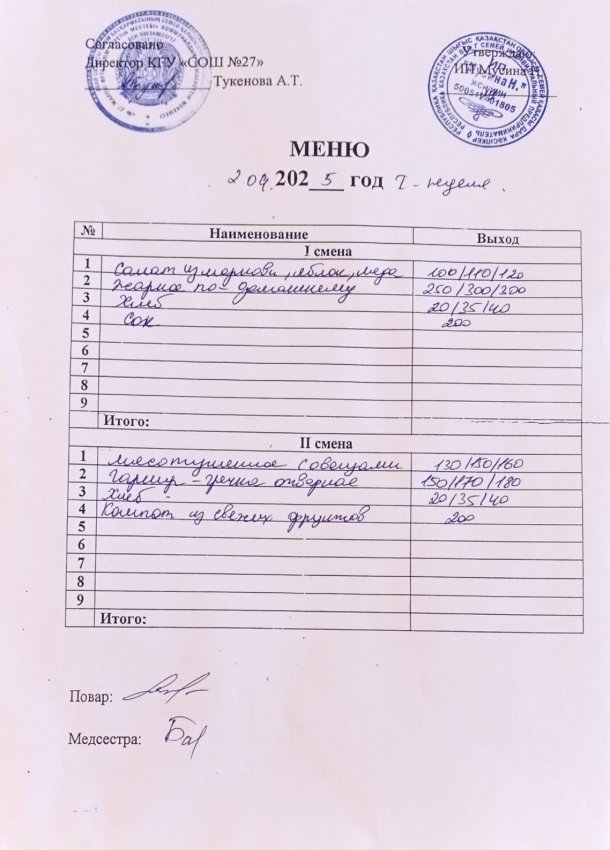 Согласовано
Директор КГУ «СОШ №27»
Тукенова А.Т.
Утверждаю
ИП Мусина
500512801805
МЕНЮ
2025 год I - неделя.
№ Наименование Выход
I смена
1 Салат из моркови, яблок, меда 100/110/120
2 Жаркое по-домашнему 250/300/300
3 Хлеб 20/35/40
4 Сок 200
5
6
7
8
9
Итого:
II смена
1 Мясо тушенное с овощами 130/150/160
2 Гарнир - гречка отварная 150/170/180
3 Хлеб - 20/35/40
4 Компот из свежих фруктов 200
5
6
7
8
9
Итого:
Повар:
Медсестра: